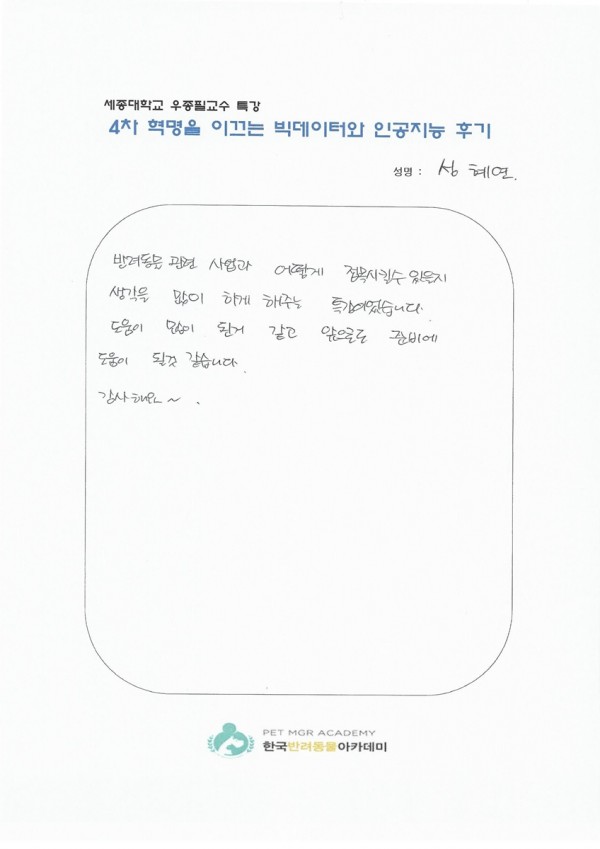 세종대학교 우종필교수 특강
4차 혁명을 이끄는 빅데이터와 인공지능 후기
성명 : 성 혜연.
반려동물 관련 사업과 어떻게 접목시킬수 있을지
생각을 많이 하게 해주는 특강이었습니다.
도움이 많이 된거 같고 앞으로도 준비에
도움이 될것 같습니다.
감사해요~.
PET MGR ACADEMY
한국반려동물아카데미